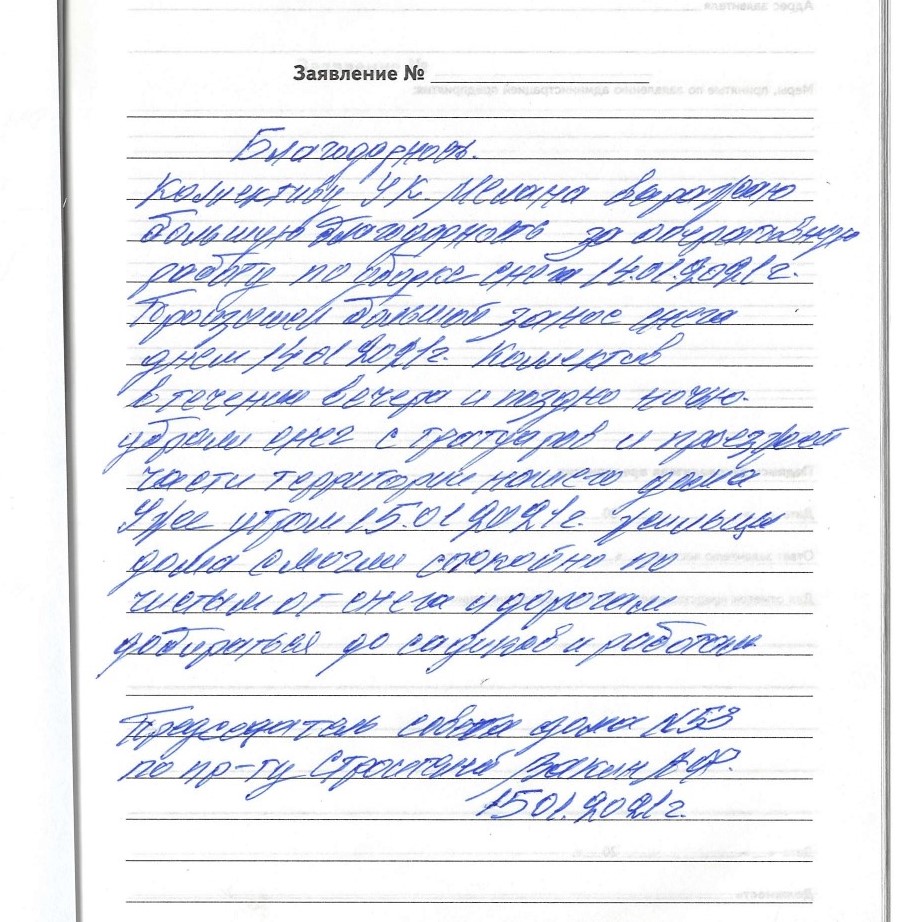 Адрес заявителя
Заявление № 
Меры, принятые по заявлению администрацией предприятия:
Благодарность.
Коллективу УК. Милана выражаю
большую благодарность за оперативную
работу по уборке снега 14.01.2021г.
Произошел большой занос снега
днем 14.01.2021г. Коллектив
в течении вечера и поздно ночью
убрали снег с тротуаров и проезжей
части территории нашего дома
Уже утром 15.01.2021г. жильцы
дома смогли спокойно по
чистым от снега дорогам
добираться до садиков и работы
Председатель совета дома N53
по пр-ту Строителей В.Ф.
15.01.2021г.
Должность